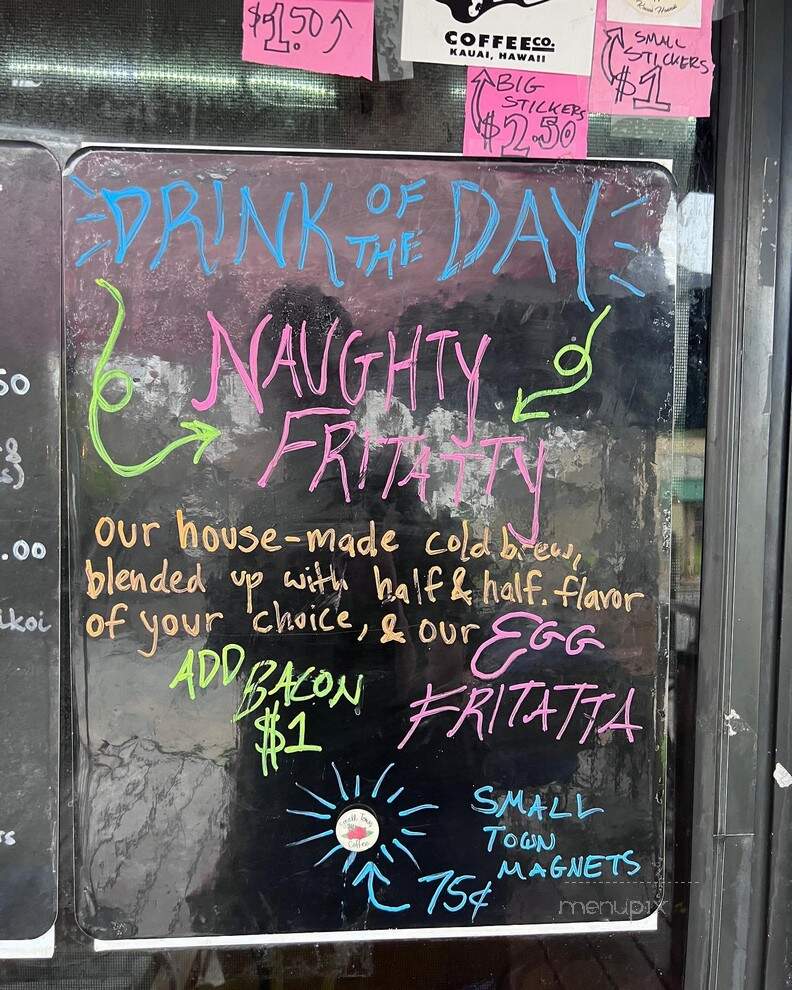 $1.50
COFFEE CO.
KAUAI, HAWAII
BIG
STICKERS
$2.50
SMALL
STICKERS
$1
DRINK OF THE DAY
NAUGHTY
FRITATTY
our house-made cold brew,
blended up with half & half, flavor
of your choice, & our EGG
FRITATTA
ADD BACON
$1
Small Town
Coffee
SMALL
TOWN
MAGNETS
75¢
50
&
s)
.00
ikoi
menupix